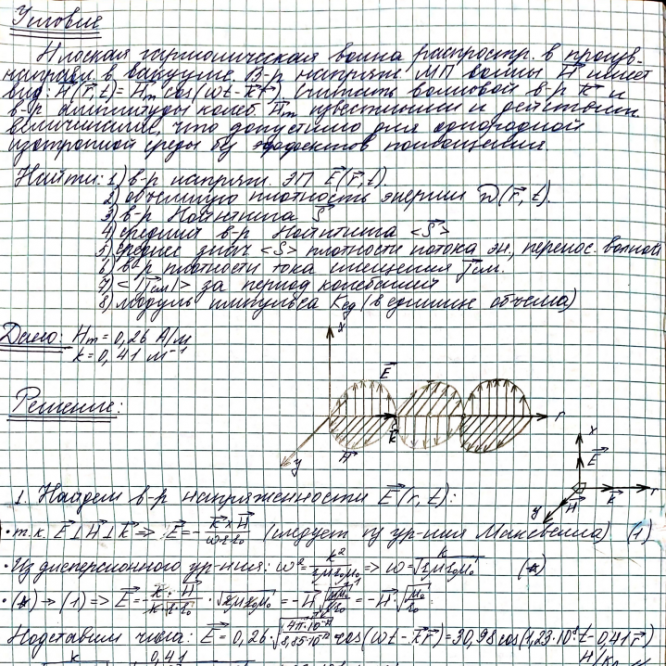 Условие
Плоская гармоническая волна распростр. в произв.
направл. в вакууме. В-р напряжён. МП волны H⃗ имеет
вид: H⃗(r⃗,t)=H⃗m cos(ωt-k⃗r⃗). Считать волновой в-р k⃗ и
в-р амплитуды колеб. H⃗m известными и действит.
величинами, что допустимо для однородной
изотропной среды без эффектов поглощения.
Найти: 1) в-р напряж. ЭП E⃗(r⃗,t).
2) объёмную плотность энергии w(r⃗,t).
3) в-р Пойнтинга S⃗
4) средний в-р Пойнтинга <S⃗>
5) среднее знач <S> плотности потока эн, перенос. волной
6) в-р плотности тока смещения j⃗см.
7) <|j⃗см|> за период колебаний
8) модуль импульса Kед (в единице объёма)
Дано: Hm=0,26 А/м
k=0,41 м⁻¹
x
E⃗
Решение:
r
k⃗
y
H⃗
x
E⃗
r
k⃗
y
H⃗
1. Найдем в-р напряженности E⃗(r,t):
• т.к. E⃗⊥H⃗⊥k⃗ => E⃗=-k⃗×H⃗/ωεε₀ (следует из ур-ния Максвелла) (1)
• Из дисперсионного ур-ния: ω²=k²/εμε₀μ₀ => ω=k/√εμε₀μ₀ (*)
• (*)→(1) => E⃗=-k⃗·H⃗/kεε₀·√εμε₀μ₀=-H⃗√μμ₀/εε₀=-H⃗√μ₀/ε₀
Подставим числа: E⃗=0,26·√4π·10⁻⁷/8,85·10⁻¹² cos(ωt-k⃗r⃗)=30,98cos(1,23·10⁸t-0,41r⃗)
k 0,41